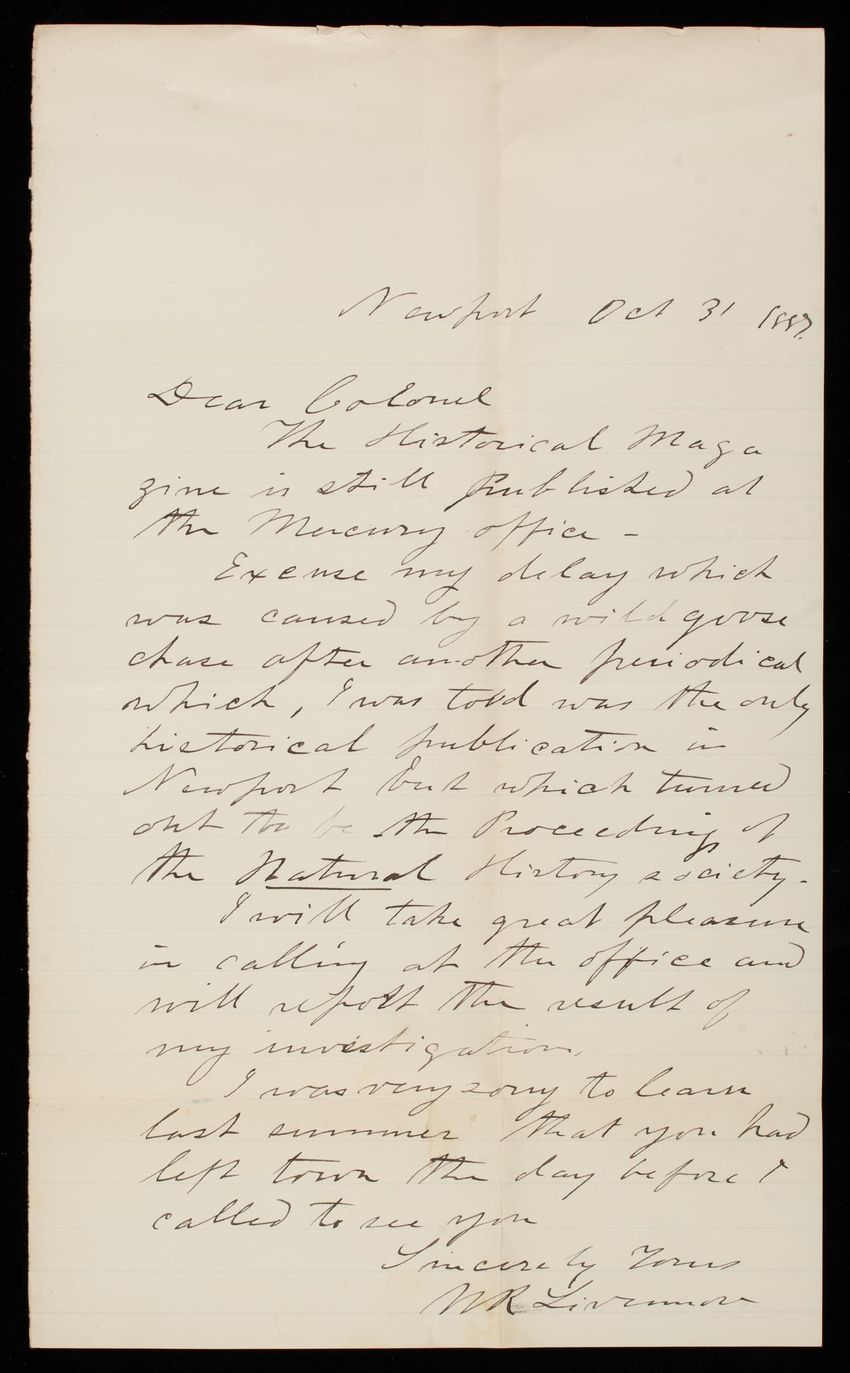 Newport Oct 31 1887.
Dear Colonel
The Historical Maga
zine is still Published at
the Mercury office -
Excuse my delay which
was caused by a wild goose
chase after another periodical
which, I was told was the only
historical publication in
Newport but which turned
out to be the Proceedings of
the Natural History society.
I will take great pleasure
in calling at the office and
will report the result of
my investigation.
I was very sorry to learn
last summer that you had
left town the day before I
called to see you
Sincerely Yours
W R Livermore